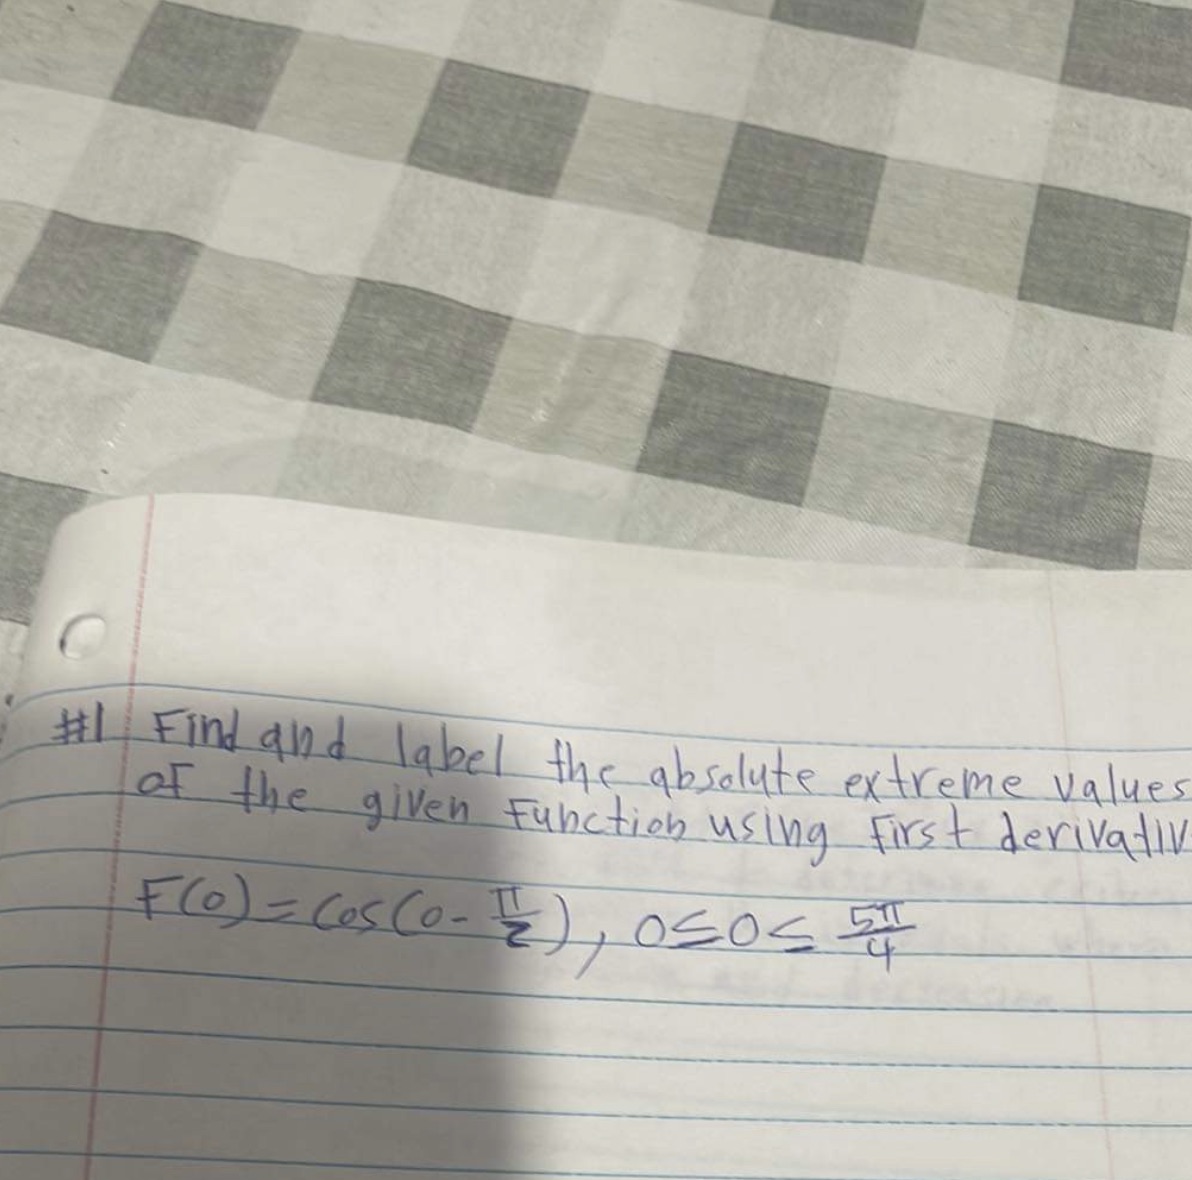 #1 Find and label the absolute extreme values
of the given Function using First derivativ
F(0) = Cos(0 - π/2), 0 ≤ 0 ≤ 5π/4